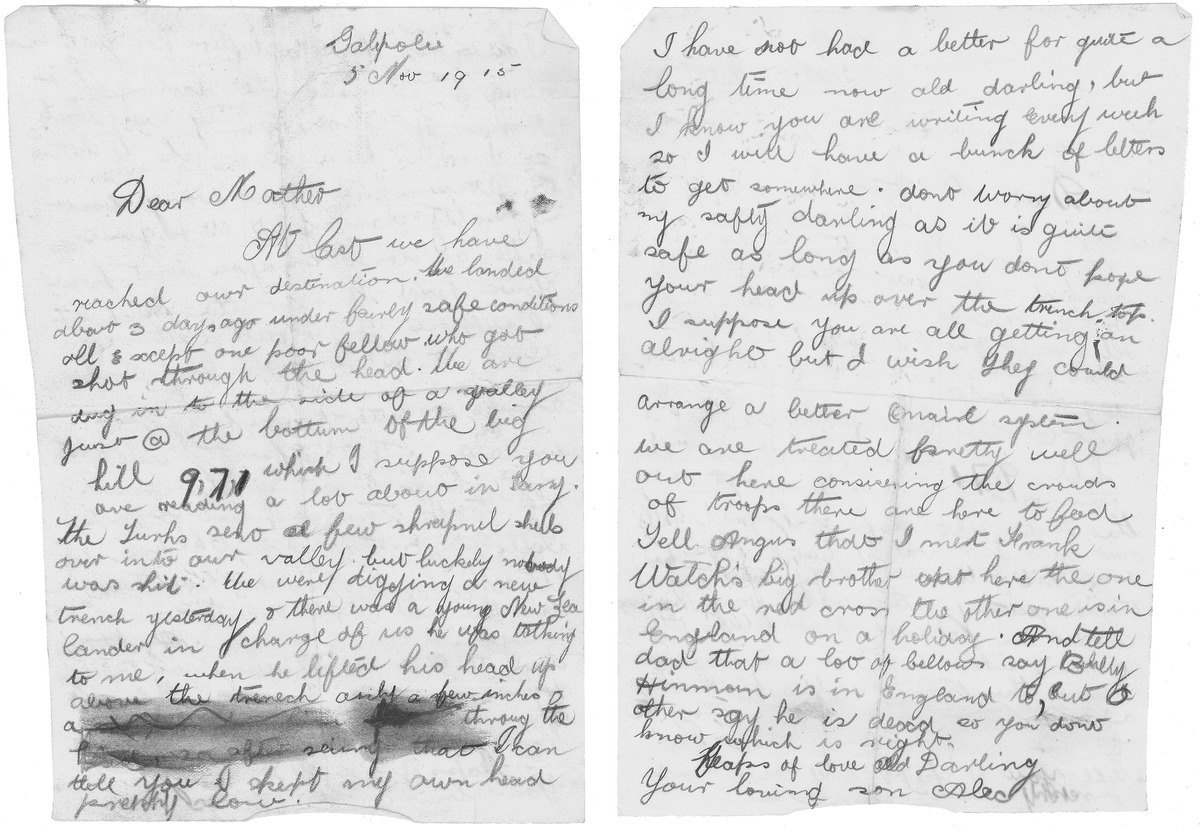 Galipolie
5 Nov 1915
Dear Mother
At last we have
reached owr destination. We landed
about 3 days ago under fairly safe conditions
all except one poor fellow who got
shot through the head. We are
dug in to the side of a valley
just @ the bottum of the big
hill 971 which I suppose you
are reading a lot about in
The Turks send a few shrapnel shells
over into our valley. but luckely nobody
was hit. We were digging a new
trench yesterday & there was a young New Zea
lander in charge of us he was talking
to me, when he lifted his head up
above the trench only a few inches
a throug the
so after seeing that I can
tell you I kept my own head
pretty low.
I have not had a letter for quite a
long time now old darling, but
I know you are writing every week
so I will have a bunch of letters
to get somewhere. dont worry about
my safty darling as it is quite
safe as long as you dont pope
your head up over the trench top.
I suppose you are all getting on
alright but I wish they could
arrange a better mail system.
we are treated pretty well
out here consicering the crouds
of troops there are here to feed
Tell Angus that I met Frank
Watch's big brother out here the one
in the red cross the other one is in
England on a holiday. And tell
dad that a lot of fellows say Billy
Hinman is in England to, but
other say he is dead so you dont
know which is right.
Heaps of love old Darling
Your loving son Alec